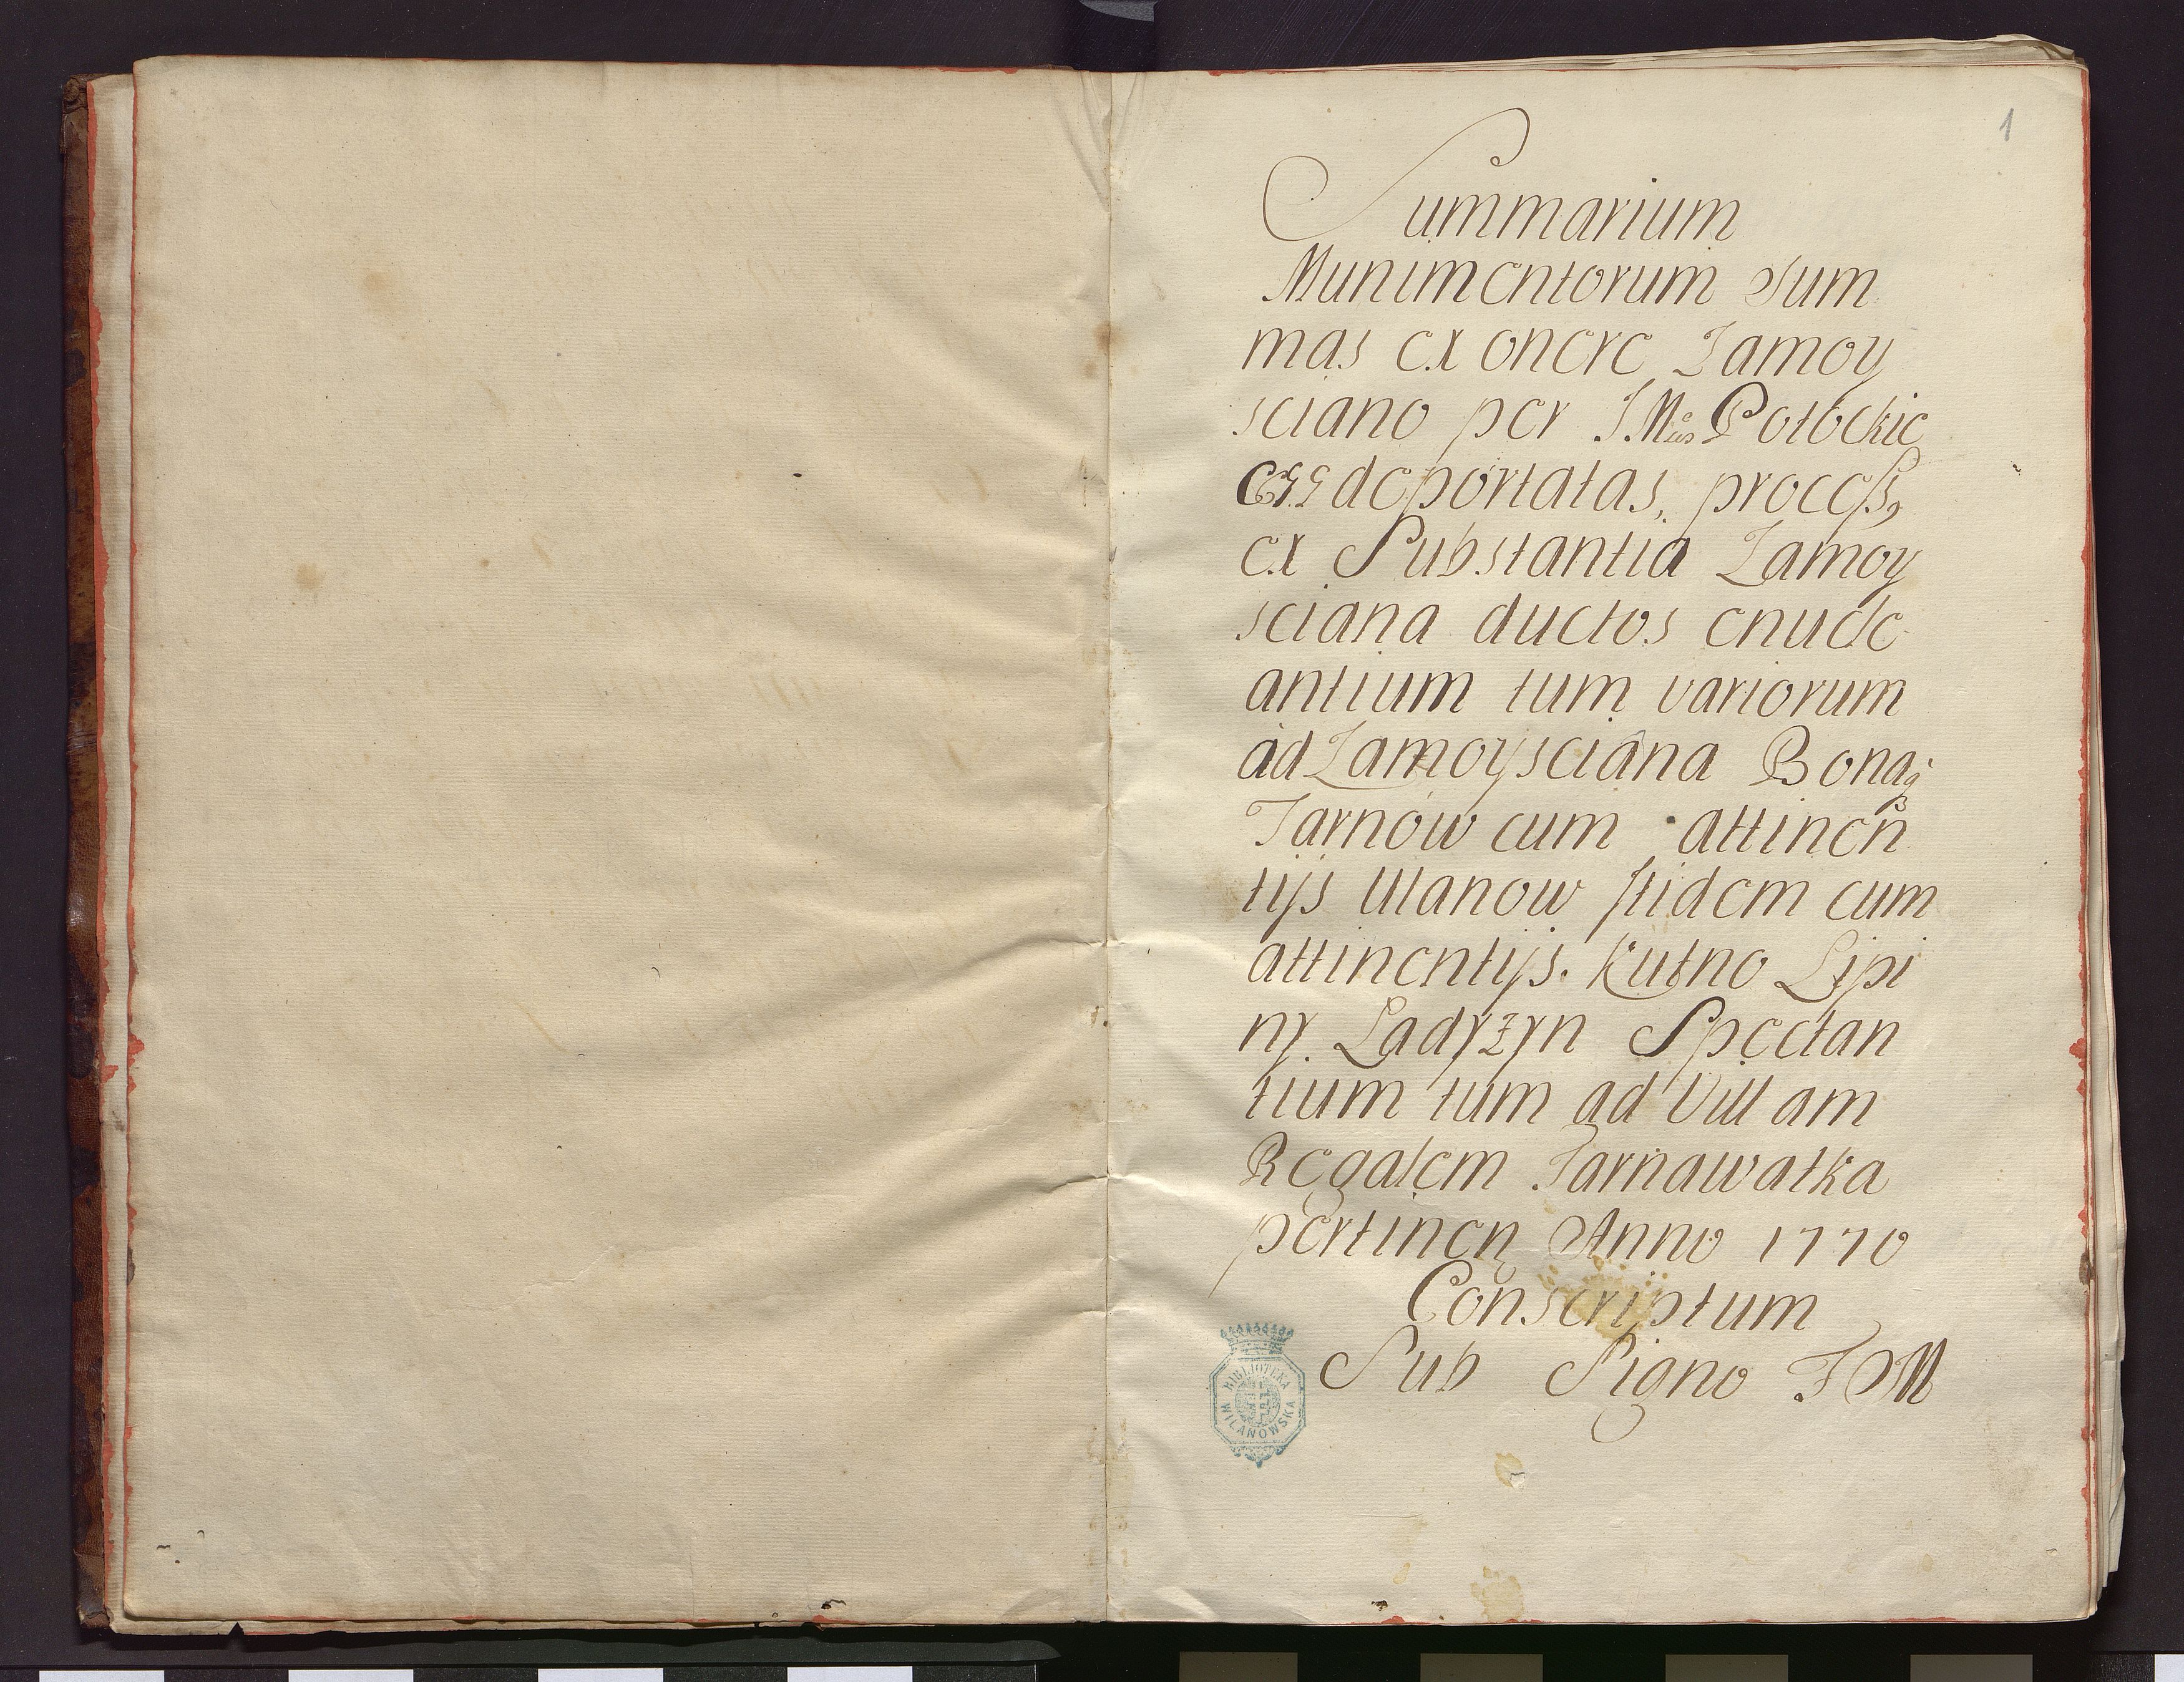 1
Summarium
Munimentorum Sum
mas ex onere Zamoy
sciano per I. M. Potockie
deportatas, process,
ex Substantia Zamoy
sciana ductos enude
antium tum variorum
ad Zamoysciana Bona
Tarnow cum attinen
tijs Ulanow itidem cum
attinentijs. Kutno Lipi
ny. Ladyzyn Spectan
tium tum ad Villam
Regalem Tarnawatka
pertinen Anno 1770
Conscriptum
Sub Signo I O M
BIBLIOTEKA
WILANOWSKA